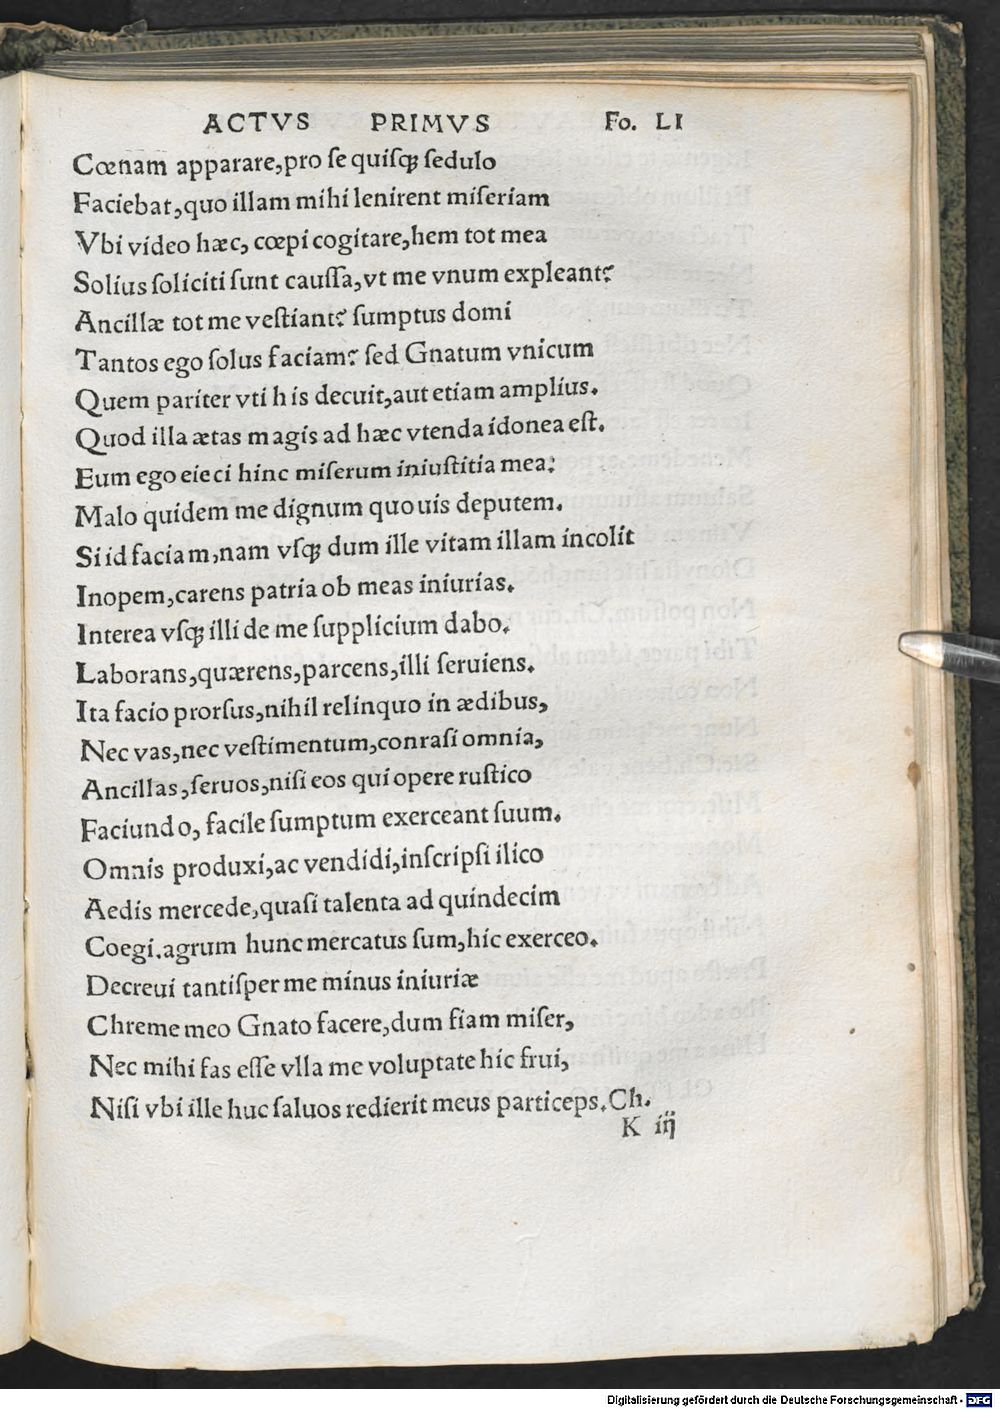 ACTVS PRIMVS Fo. LI
Cœnam apparare,pro ſe quiſqꝫ ſedulo
Faciebat,quo illam mihi lenirent miſeriam
Vbi video hæc, cœpi cogitare,hem tot mea
Solius ſoliciti ſunt cauſſa,vt me vnum expleant?
Ancillæ tot me veſtiant? ſumptus domi
Tantos ego ſolus faciam? ſed Gnatum vnicum
Quem pariter vti his decuit,aut etiam amplius.
Quod illa ætas magis ad hæc vtenda idonea eſt.
Eum ego eieci hinc miſerum iniuſtitia mea:
Malo quidem me dignum quouis deputem.
Si id faciam,nam vſqꝫ dum ille vitam illam incolit
Inopem,carens patria ob meas iniurias.
Interea vſqꝫ illi de me ſupplicium dabo.
Laborans,quærens,parcens,illi ſeruiens.
Ita facio prorſus,nihil relinquo in ædibus,
Nec vas,nec veſtimentum,conraſi omnia,
Ancillas,ſeruos,niſi eos qui opere ruſtico
Faciundo, facile ſumptum exerceant ſuum.
Omnis produxi,ac vendidi,inſcripſi ilico
Aedis mercede,quaſi talenta ad quindecim
Coegi.agrum hunc mercatus ſum,hic exerceo.
Decreui tantiſper me minus iniuriæ
Chreme meo Gnato facere,dum fiam miſer,
Nec mihi fas eſſe vlla me voluptate hic frui,
Niſi vbi ille huc ſaluos redierit meus particeps.Ch.
K iij
Digitalisierung gefördert durch die Deutsche Forschungsgemeinschaft - DFG